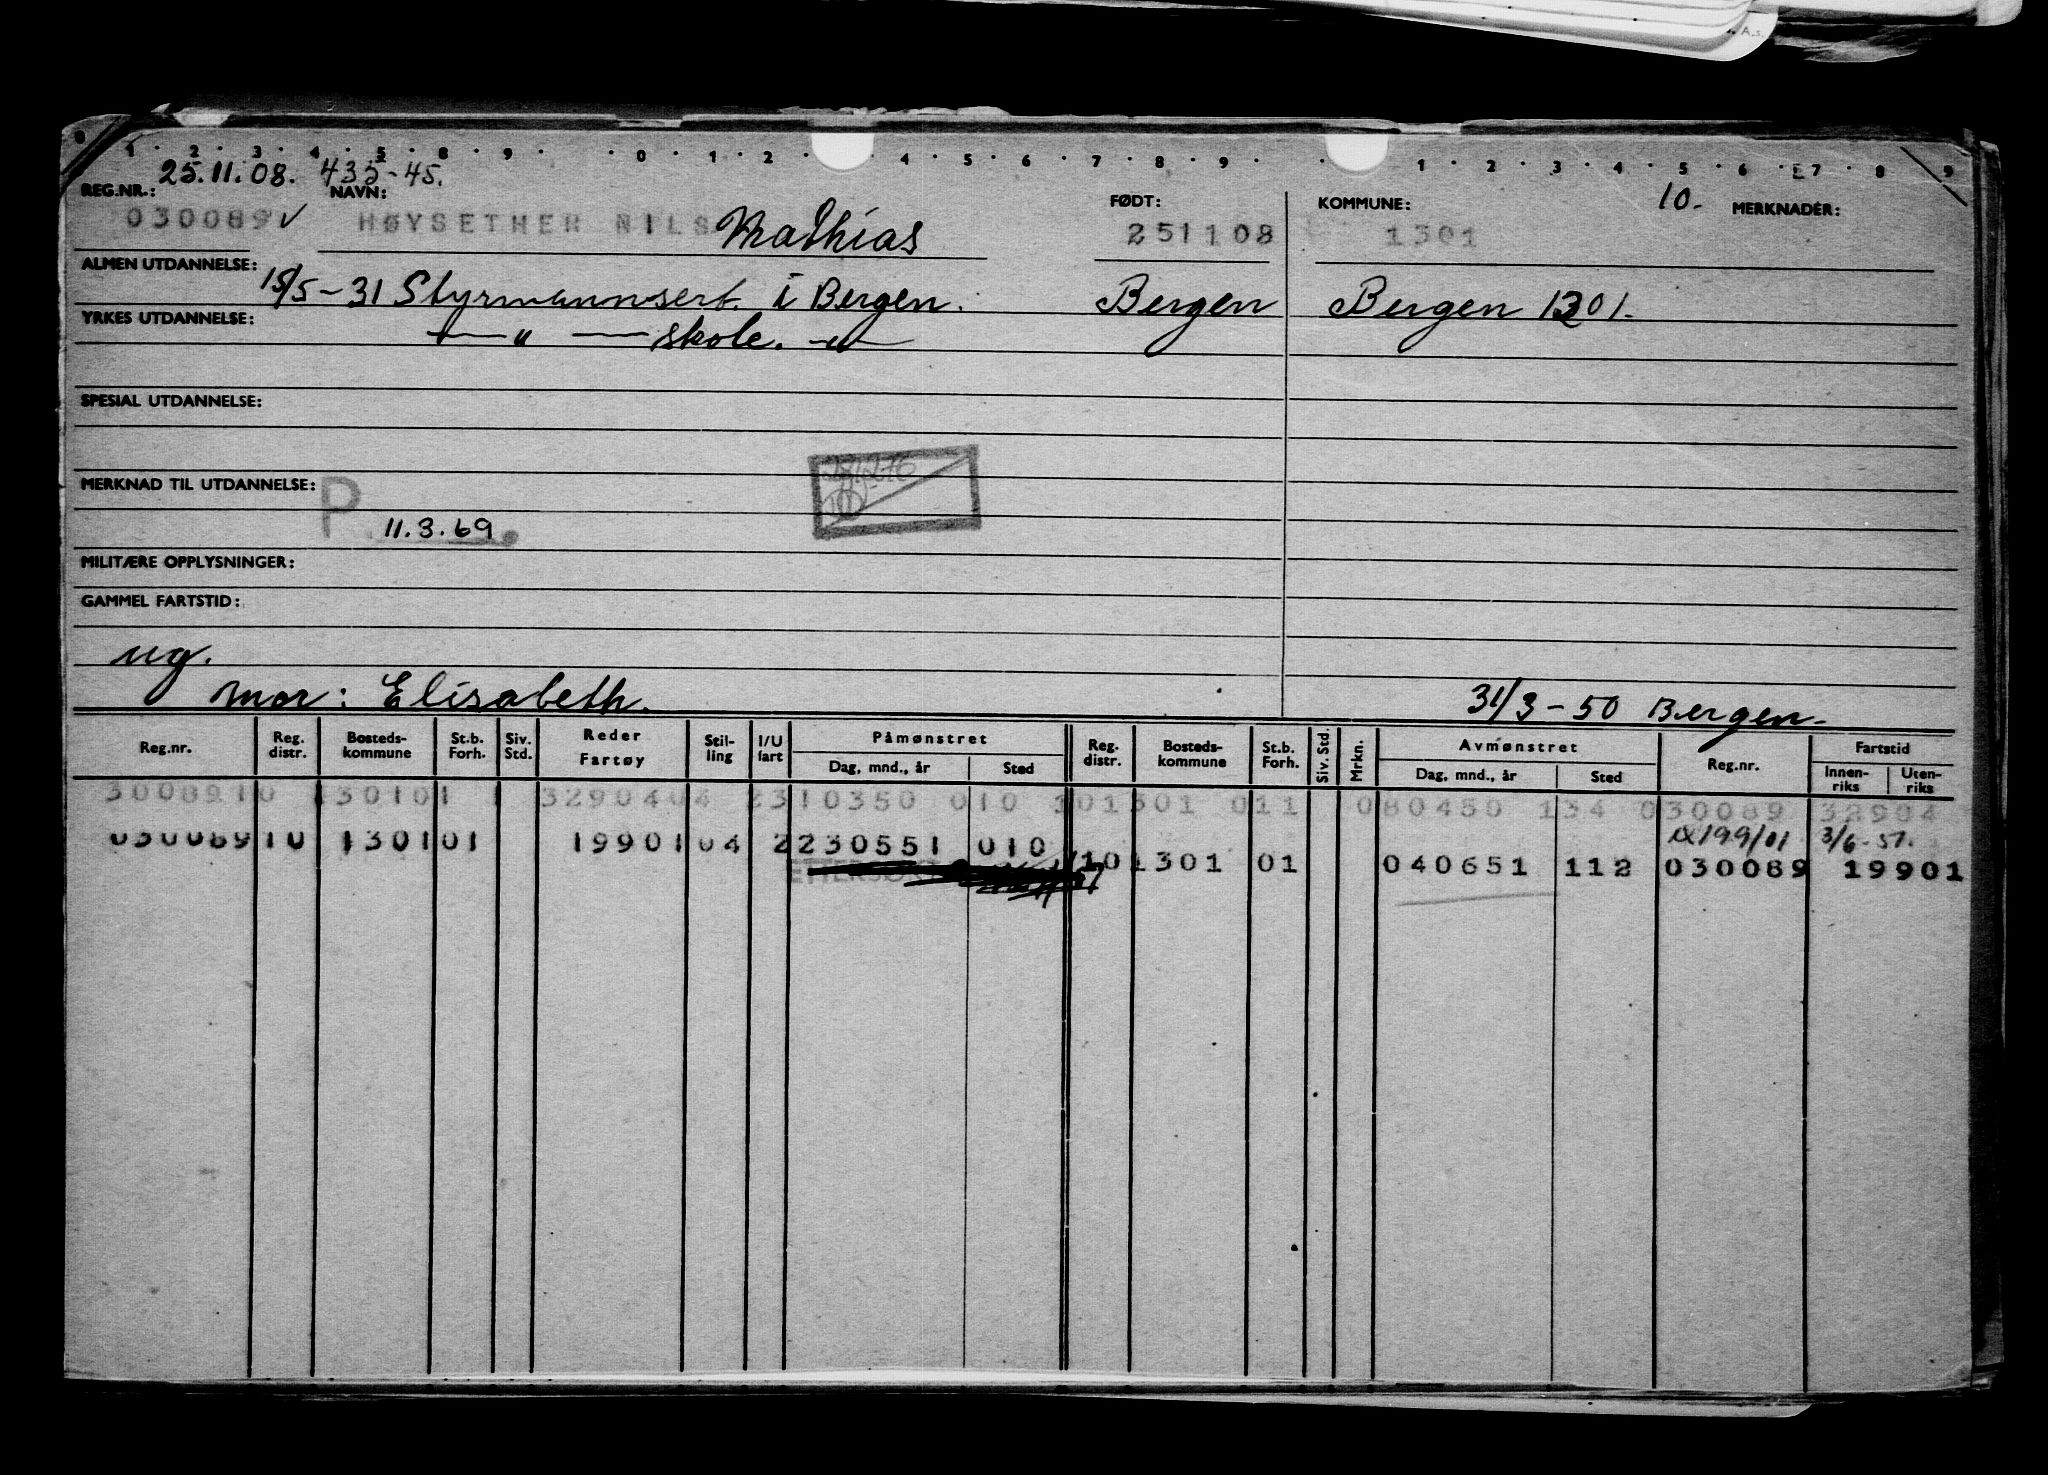 A.s.
1 . 2 . 3 . 4 . 5 . 8 . 9 . 0 . 1 . 2 4 . 5 . 6 . 7 . 8 . 9 . 1 . 2 . 3 . 4 . 5 . 6 . 7 . 8 . 9
25.11.08. 435-45.
REG.NR.: NAVN: FØDT: KOMMUNE: 10. MERKNADER:
030089 ✓ HØYSETHER NILS Mathias 251108 1301
ALMEN UTDANNELSE: 15/5-31 Styrmannsert. i Bergen. Bergen Bergen 1301.
YRKES UTDANNELSE: —"— skole. —"—
SPESIAL UTDANNELSE:
MERKNAD TIL UTDANNELSE: P
11.3.69.
MILITÆRE OPPLYSNINGER:
GAMMEL FARTSTID:
ug.
mor: Elisabeth. 31/3-50 Bergen.
Reg.nr. Reg. distr. Bosteds-kommune St.b. Forh. Siv. Std. Reder Fartøy Stil-ling I/U fart Påmønstret Dag, mnd., år Sted Reg. distr. Bosteds-kommune St.b. Forh. Siv. Std. Mrkn. Avmønstret Dag, mnd., år Sted Reg.nr. Fartstid Innen-riks Uten-riks
30089 10 1301 01 1 32904 04 2310350 010 101301 011 080450 134 030089 32904
030089 10 1301 01 19901 04 2230551 010 199/01 3/6-51.
101301 01 040651 112 030089 19901